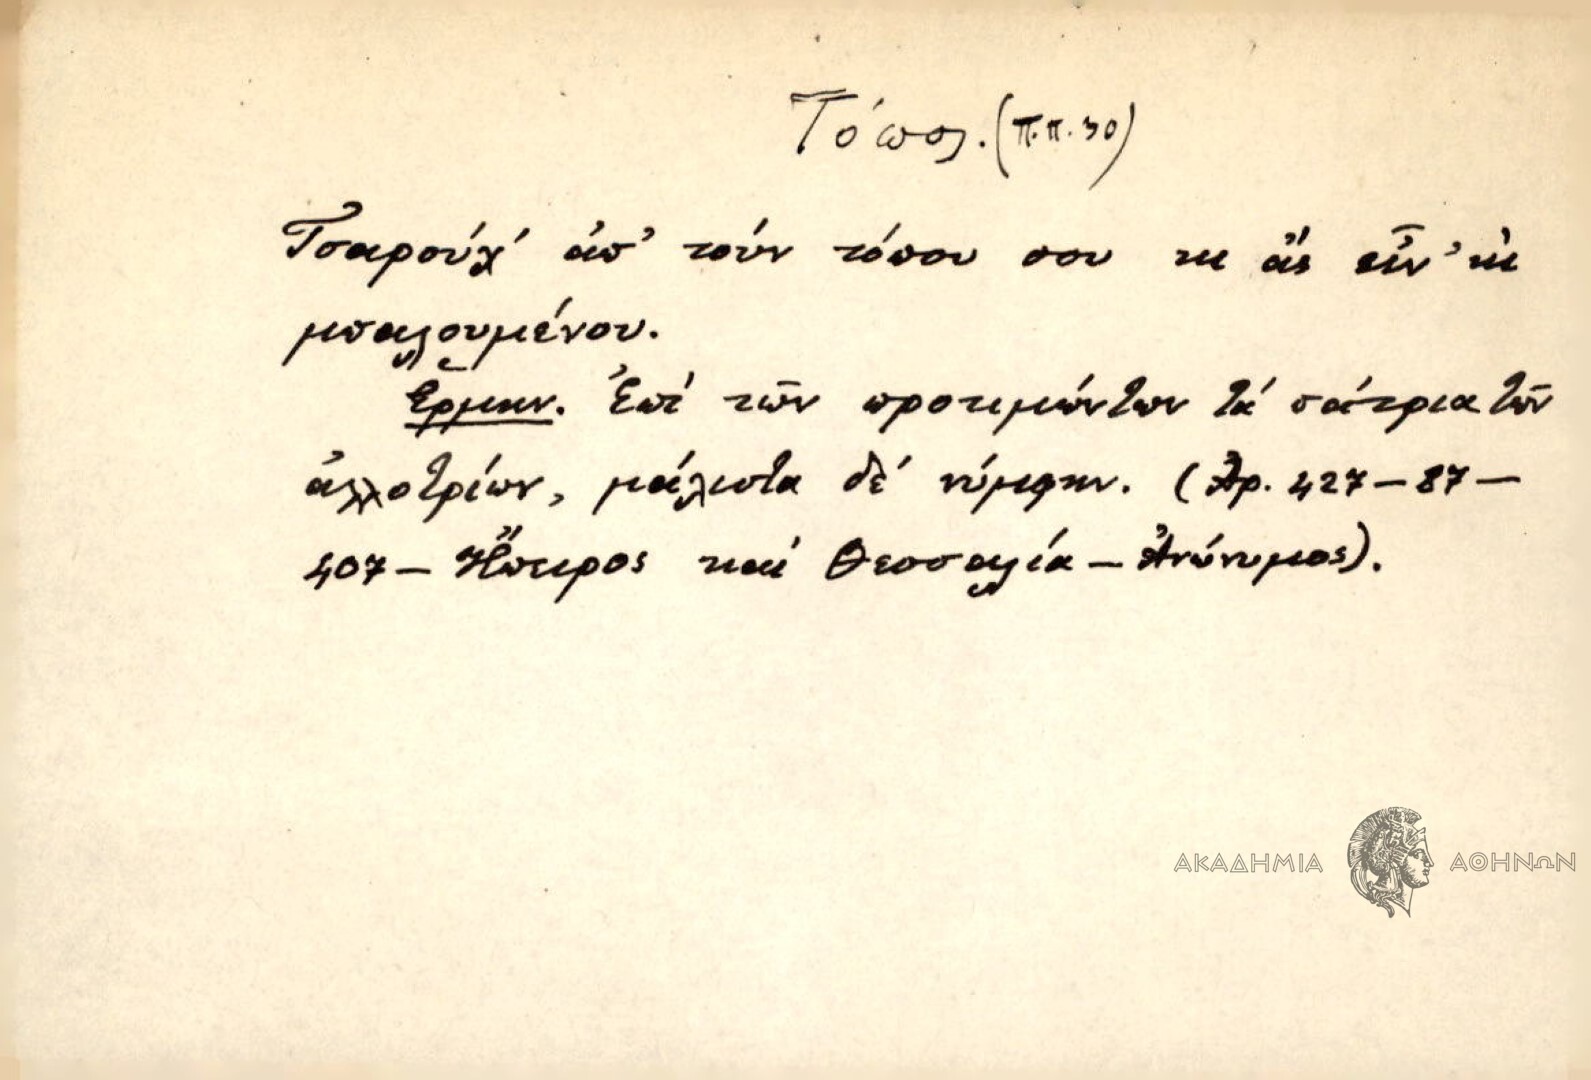 Τόπος. (π.π. 30)
Τσαρούχ' ἀπ' τούν τόπου σου κι ἄς εἶν' κὶ
μπαλουμένου.
Ἑρμην. Ἐπί τῶν προτιμώντων τά πάτρια τῶν
ἀλλοτρίων, μάλιστα δέ νύμφην. (Ἀρ. 427-87-
407- Ἤπειρος καί Θεσσαλία - Ἀνώνυμος).
ΑΚΑΔΗΜΙΑ ΑΘΗΝΩΝ